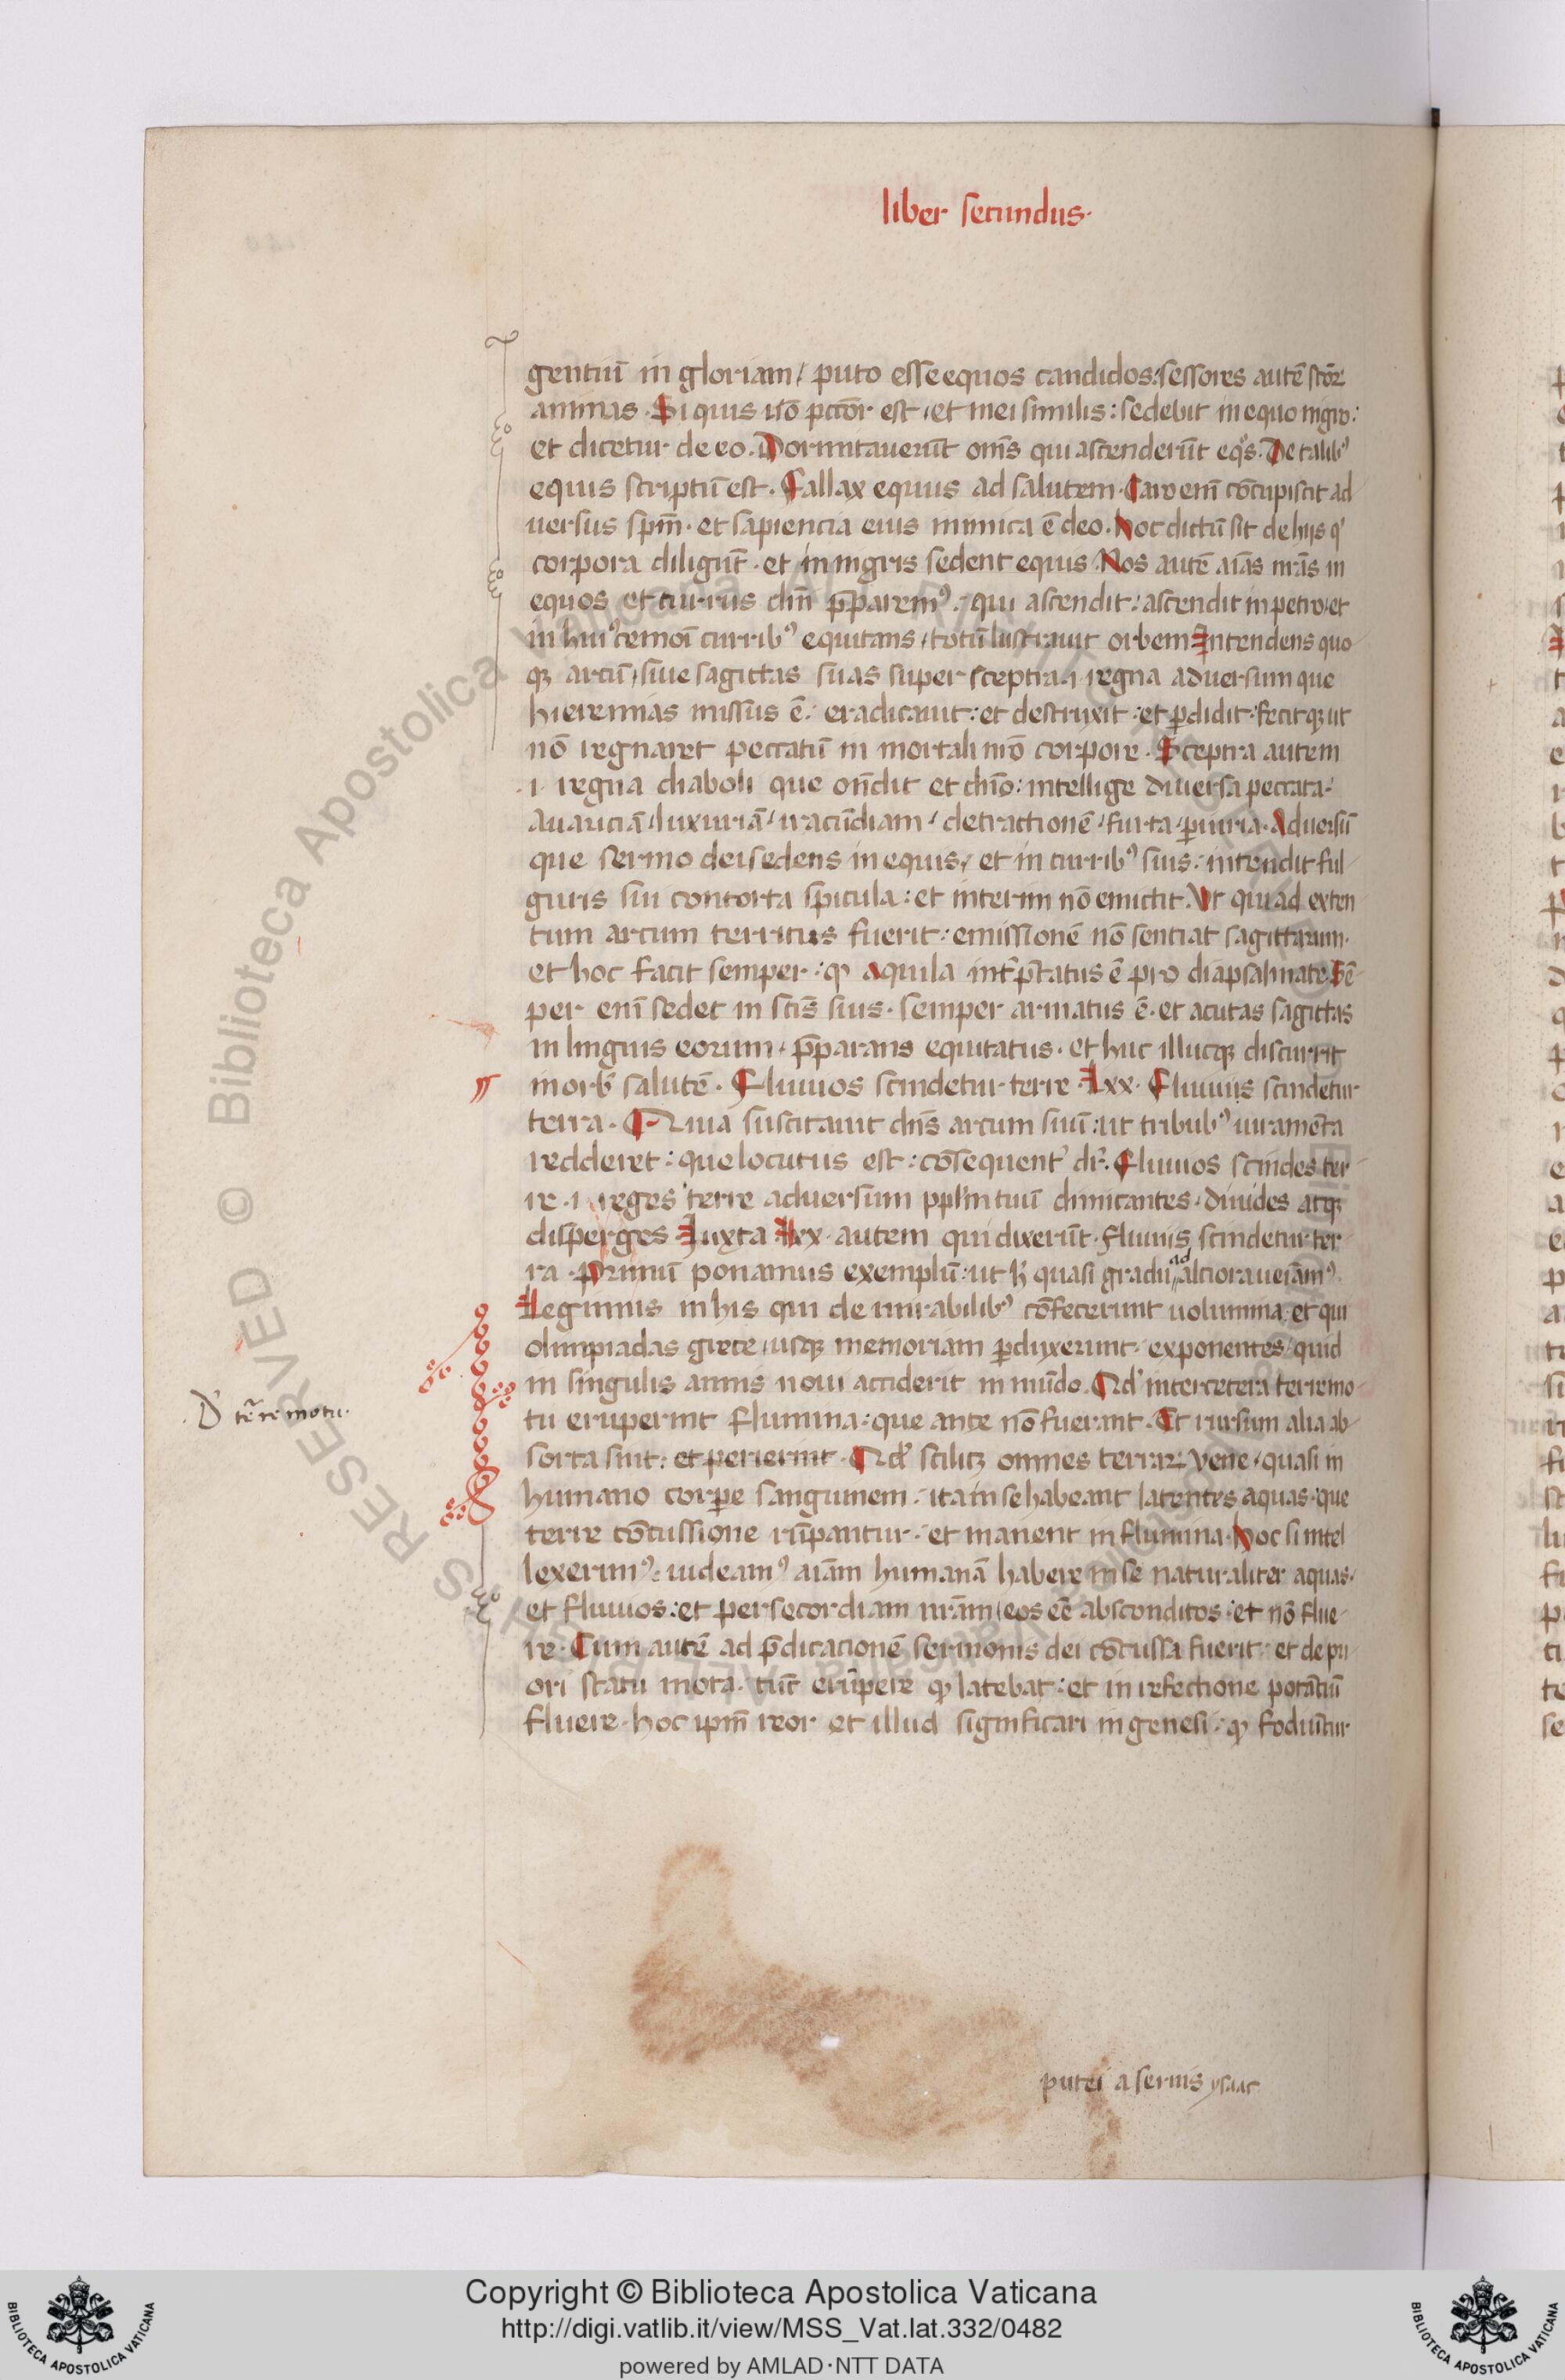 liber secundus·
gentiū in gloriam / puto esse equos candidos: sessores autē sc̄oꝝ
animas · Si quis u͛o pcc̄or est · et mei similis : sedebit in equo nigro :
et dicetur de eo. Dormitauerūt om̄s qui ascenderūt eqͦs. De talibꝰ
equis scriptū est · Fallax equus ad salutem · Caro eni͞ cōcupiscit ad
uersus sp̄m · et sapiencia eius inimica ē deo. hoc dictū sit de hijs qⁱ
corpora diligūt · et in nigris sedent equis Nos autē aīas nr̄as in
equos et currus dn̄i p̄paremꝰ : qui ascendit : ascendit in petro · et
in huiꝰcemōi curribꝰ equitans / totū lustrauit orbem Intendens quo
qꝫ arcū / siue sagittas suas super sceptra · i · regna aduersum que
hieremias missus ē : eradicauit : et destruxit : et ꝑdidit : fecitqꝫ ut
nō regnaret peccatū in mortali nr̄o corpore · Sceptra autem
· i · regna diaboli que on̄dit et chr̄o : intellige diuersa peccata ·
Auariciā / luxuriā / iracūdiam / detractionē / furta / ꝑiuria · Aduersū
que sermo dei sedens in equis / et in curribꝰ suis : intendit ful
guris sui contorta spicula : et interim nō emictit. Vt qui ad exten
tum arcum territus fuerit : emissionē nō sentiat sagittarum ·
et hoc facit semper : ꝙ Aquila int͛p̄tatus ē pro diapsalmate. Sē
per eni͞ sedet in sc̄is suis · semper armatus ē · et acutas sagittas
in linguis eorum · p̄parans equitatus · et huc illucqꝫ discurrit
in orb̄ salutē · Fluuios scindetur terre · Lxx · Fluuiis scindetur
terra · Quia suscitauit dn̄s arcum suū : ut tribubꝰ iuramēta
redderet : que locutus est : cōsequent͛ dr̄ · Fluuios scindes ter
re · i · reges terre aduersum ppl̄m tuū dimicantes · diuides atqꝫ
disperges Iuxta Lxx · autem qui dixerūt · fluuiis scindetur ter
ra · Primū ponamus exemplū : ut h̄ quasi gradu ad altiora ueiāmꝰ ·
Legimus in his qui de mirabilibꝰ cōfecerunt uolumina · et qui
olimpiadas grece / usqꝫ memoriam ꝑduxerunt · exponentes / quid
in singulis annis noui acciderit in mūdo. Qd͛ inter cetera terre mo
tu eruperint flumina : que ante nō fuerant · Et rursum alia ab
sorta sint : et perierint · Qd͛ scilicꝫ omnes terraꝝ vene / quasi in
humano corꝑe sanguinem · ita in se habeant latentes aquas · que
terre cōcussione rūpantur · et manent in flumina · hoc si intel
lexerimꝰ : uideamꝰ aīam humanā habere in se naturaliter aquas ·
et fluuios : et per secordiam nr̄am / eos eē absconditos : et nō flue
re · Cum autē ad p̄dicacionē sermonis dei cōcussa fuerit · et de pri
ori statu mota · tūc erūpere ꝙ latebat : et in refectione potātiū
fluere · hoc ipm̄ reor et illud significari in genesi : ꝙ fodiūtur
D͛ tēre motu·
putei a seruis ysaac
Copyright © Biblioteca Apostolica Vaticana
http://digi.vatlib.it/view/MSS_Vat.lat.332/0482
powered by AMLAD·NTT DATA